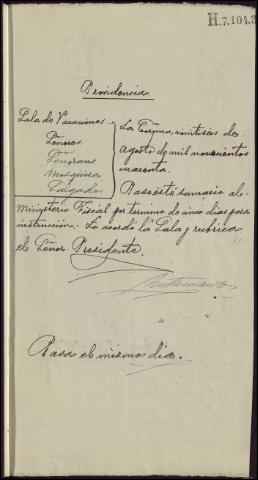 H.7.104.3
Providencia
Sala de Vacaciones
Señores
Mosquera
Salgado
La Coruña, veintiseis de
Agosto de mil novecientos
cuarenta.
Pase este sumario al
Ministerio Fiscal por termino de cinco dias para
instrucción. Lo acordó la Sala y rubrica
el Señor Presidente.
Pasa el mismo dia.